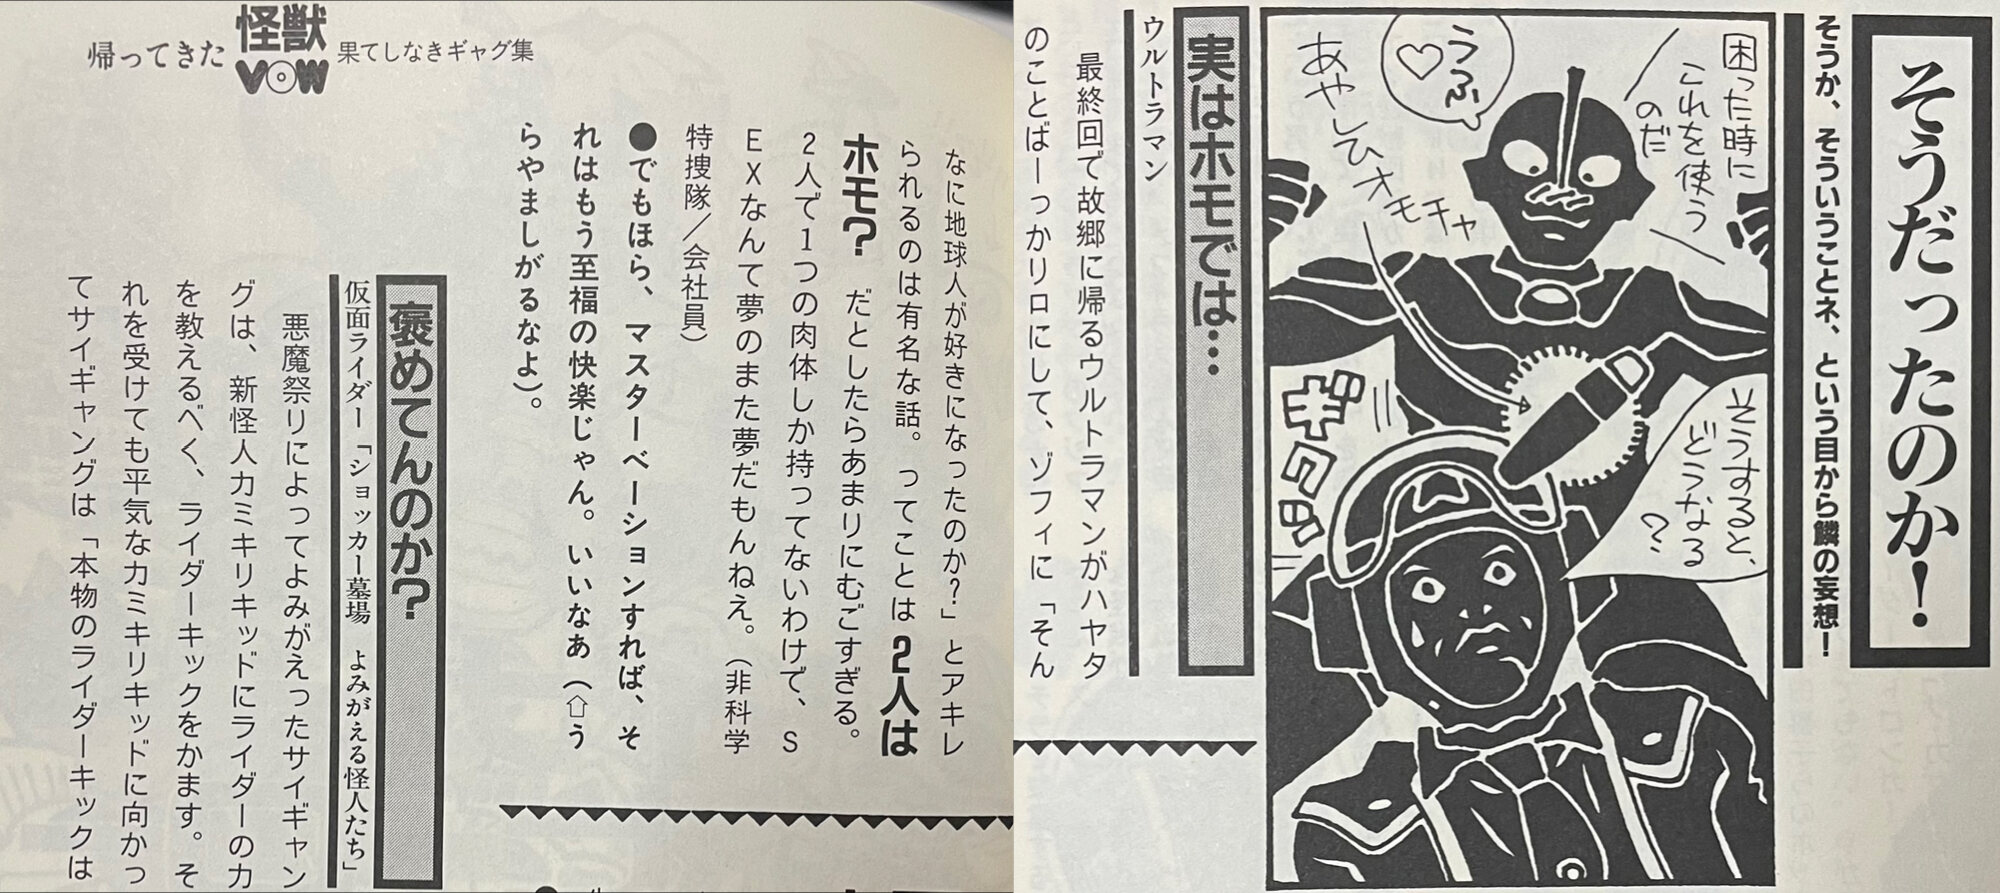 そうだったのか!
そうか、そういうことネ、という目から鱗の妄想!
困った時に
これを使う
のだ
うふ
♡
あやしひオモチャ
そうすると、
どうなる
?
ギクッ
実はホモでは…
ウルトラマン
最終回で故郷に帰るウルトラマンがハヤタ
のことばーっかりロにして、ゾフィに「そん
帰ってきた
怪獣
VOW
果てしなきギャグ集
なに地球人が好きになったのか?」とアキレ
られるのは有名な話。ってことは2人は
ホモ? だとしたらあまりにむごすぎる。
2人で1つの肉体しか持ってないわけで、S
EXなんて夢のまた夢だもんねえ。(非科学
特捜隊/会社員)
●でもほら、マスターベーションすれば、そ
れはもう至福の快楽じゃん。いいなあ(⇧う
らやましがるなよ)。
褒めてんのか?
仮面ライダー「ショッカー墓場 よみがえる怪人たち」
悪魔祭りによってよみがえったサイギャン
グは、新怪人カミキリキッドにライダーの力
を教えるべく、ライダーキックをかます。そ
れを受けても平気なカミキリキッドに向かっ
てサイギャングは「本物のライダーキックは